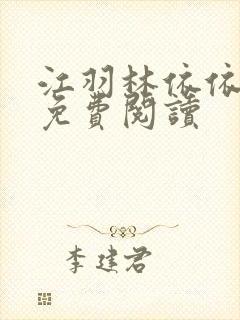 江羽林依依
免費閱讀
李建君